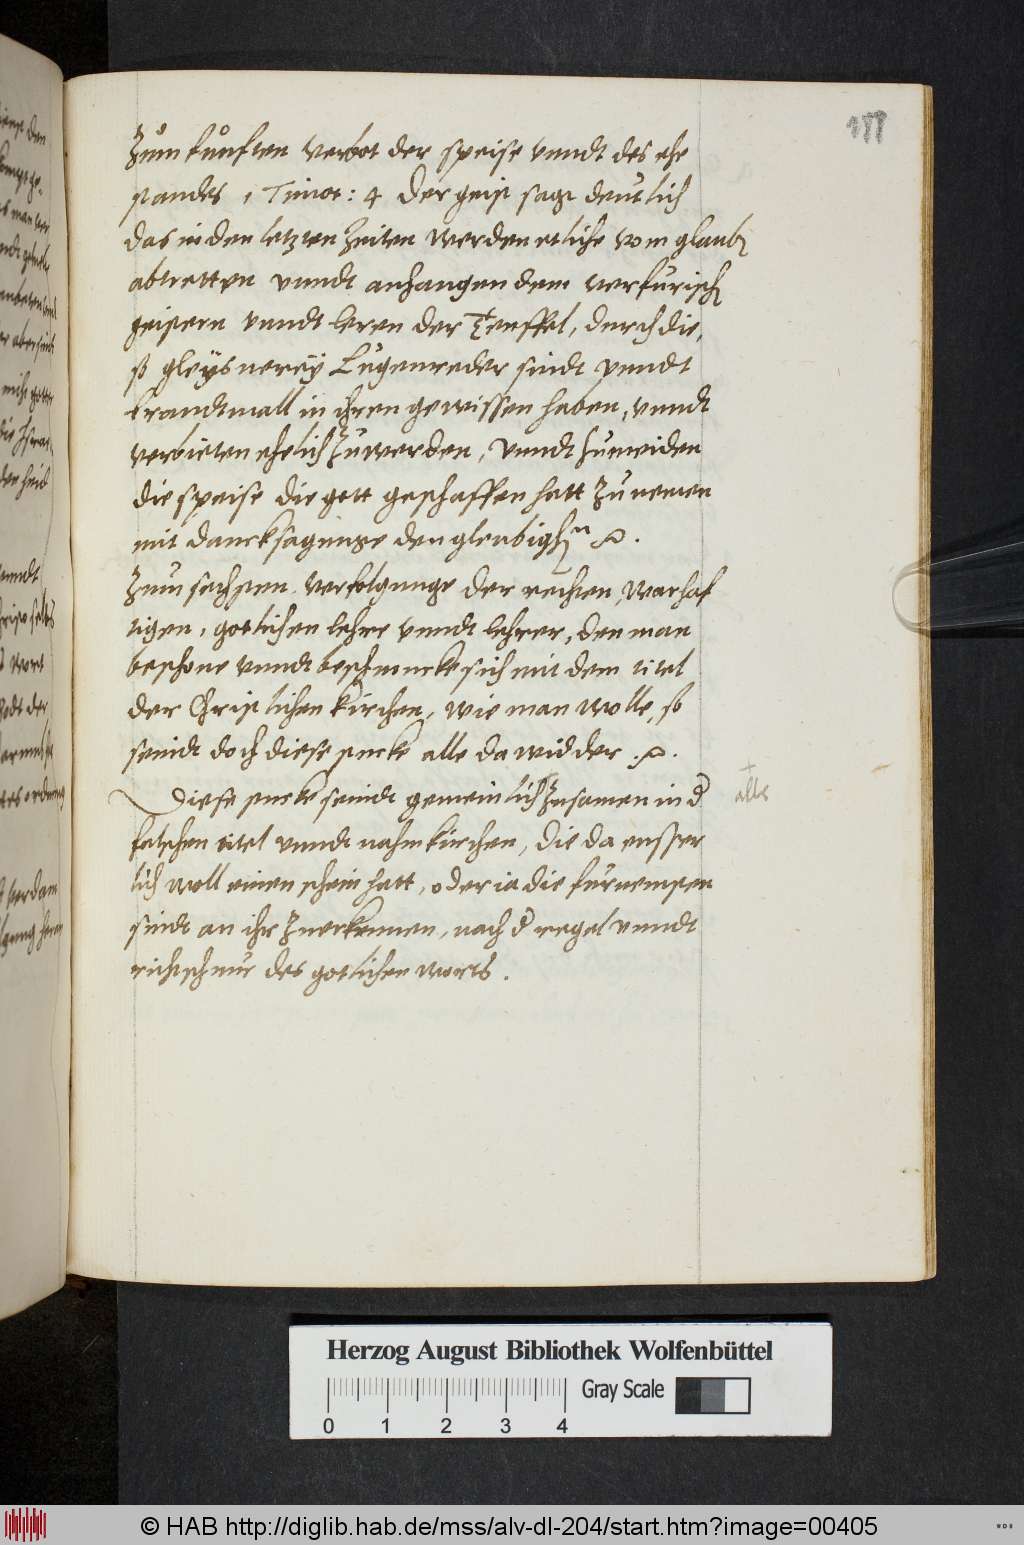 Zum funften verbot der speise vnndt des ehe
standes 1 Timot: 4 der geist sagt deutlich
das in den letzten Zeiten werden etliche vom glaub
abtretten vnndt anhangen dem verfurisch
geistern vnndt leren der Teuffel, durch die,
ß gleysnerey Lugenreder sindt vnndt
brandtmall in ihren gewissen haben, vnndt
verbieten ehelich Zuwerden, vnndt Zumeiden
die speise die gott geschaffen hatt Zu nemen
mit dancksagunge den gleubigen
Zum sechsten verfolgunge der rechten, warhaf
tigen, gotlichen lehre vnndt lehrer, den man
beschone vnndt beschmucke sich mit dem titel
der Christlichen kirchen, wie man wolle, so
seindt doch diese stucke alle da widder
Diese stucke seindt gemeinlich Zusamen in d
falschen titel vnndt nahm kirchen, die da eusser
lich woll einen schein hatt, oder ia die furnempsten
sindt an ihr Zuerkennen, nach d regel vnndt
richtschnur des gotlichen worts.
alles
Herzog August Bibliothek Wolfenbüttel
Gray Scale
0 1 2 3 4
© HAB http://diglib.hab.de/mss/alv-dl-204/start.htm?image=00405